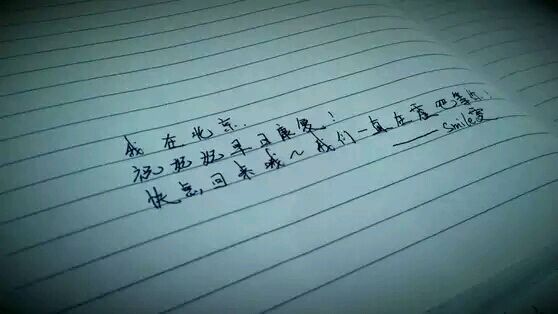 我在北京.
祝妮妮早日康复!
快点回来哦～我们一直在霞吧等你!
—— Smile霞